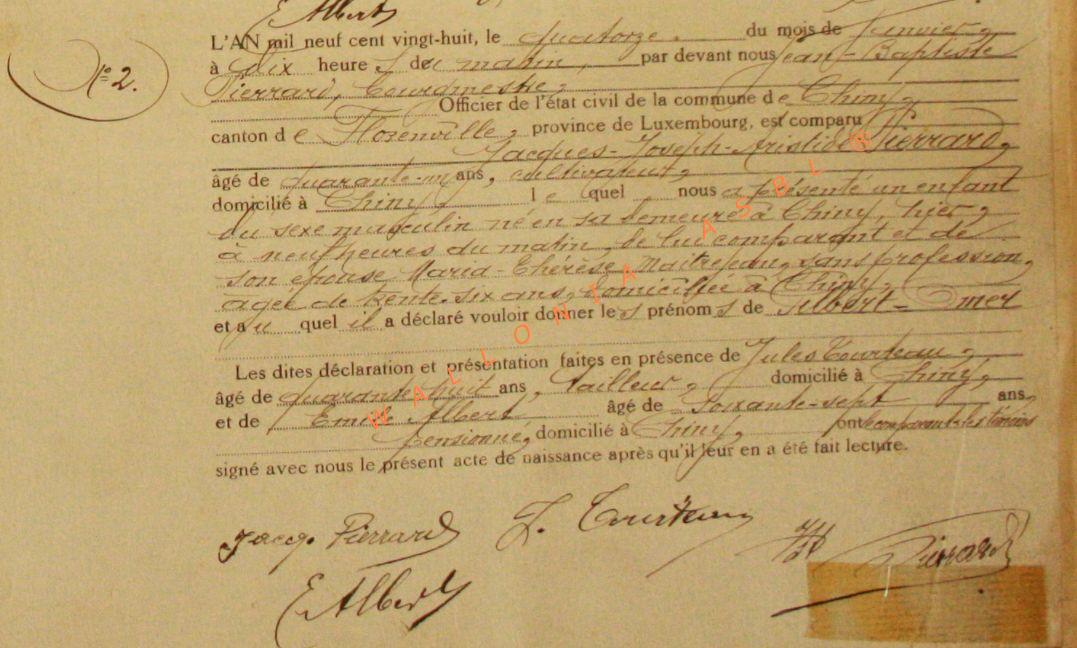 E Albert
N° 2.
L'AN mil neuf cent vingt-huit, le quatorze du mois de Janvier,
à Dix heures du matin, par devant nous Jean-Baptiste
Pierrard, Bourgmestre,
Officier de l'état civil de la commune de Chiny,
canton de Florenville, province de Luxembourg, est comparu
Jacques-Joseph-Aristide Pierrard,
âgé de quarante-un ans, cultivateur,
domicilié à Chiny, lequel nous a présenté un enfant
du sexe masculin né en sa demeure à Chiny, hier,
à neuf heures du matin, de lui comparant et de
son épouse Maria-Thérèse Maitrejean, sans profession,
agée de trente-six ans, domiciliée à Chiny,
et auquel il a déclaré vouloir donner les prénoms de Gilbert-Omer
Les dites déclaration et présentation faites en présence de Jules Tourteau,
âgé de quarante huit ans, tailleur, domicilié à Chiny,
et de Emile Albert âgé de soixante-sept ans,
pensionné, domicilié à Chiny, ont le comparant & les témoins
signé avec nous le présent acte de naissance après qu'il leur en a été fait lecture.
Jacq. Pierrard J. Tourteau JB Pierrard
E Albert
WALLONIA ASBL